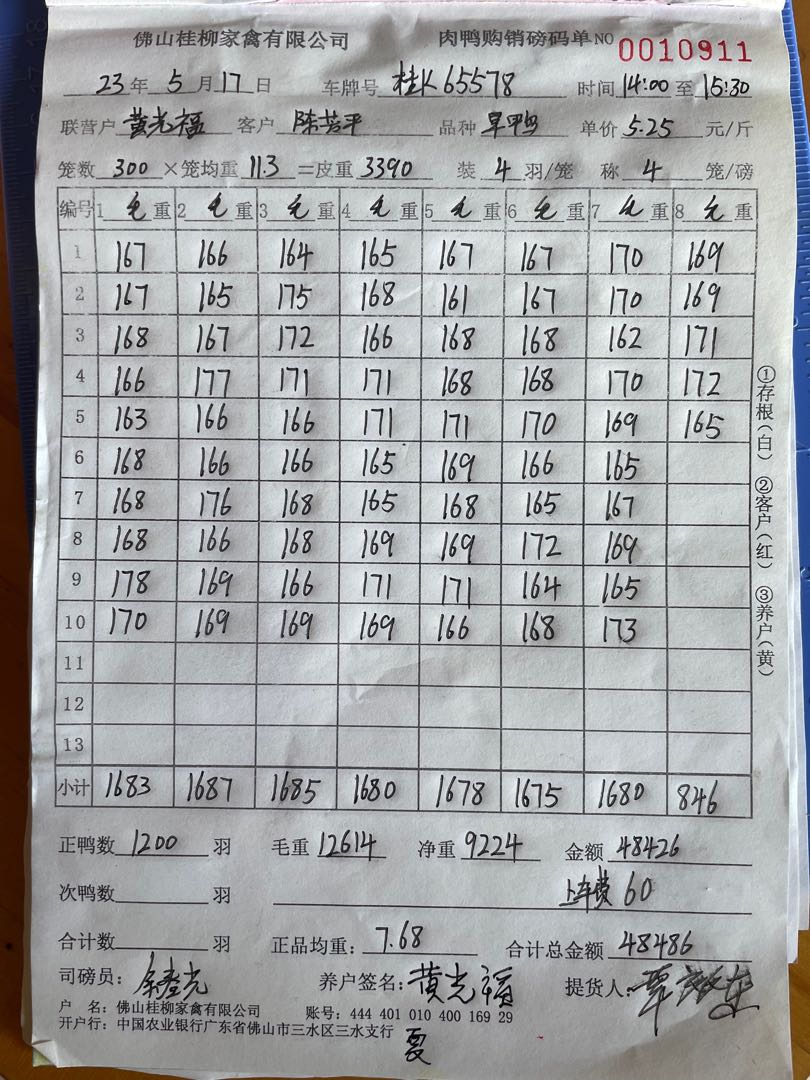 佛山桂柳家禽有限公司 肉鸭购销磅码单 NO 0010911
23年 5月 17日 车牌号 桂K65578 时间 14:00 至 15:30
联营户 黄光福 客户 陈芳平 品种 旱鸭 单价 5.25 元/斤
笼数 300 ×笼均重 11.3 =皮重 3390 装 4 羽/笼 称 4 笼/磅
编号 1 毛重 2 毛重 3 毛重 4 毛重 5 毛重 6 毛重 7 毛重 8 毛重
1 167 166 164 165 167 167 170 169
2 167 165 175 168 161 167 170 169
3 168 167 172 166 168 168 162 171
4 166 177 171 171 168 168 170 172
5 163 166 166 171 171 170 169 165
6 168 166 166 165 169 166 165
7 168 176 168 165 168 165 167
8 168 166 168 169 169 172 169
9 178 169 166 171 171 164 165
10 170 169 169 169 166 168 173
11
12
13
小计 1683 1687 1685 1680 1678 1675 1680 846
正鸭数 1200 羽 毛重 12614 净重 9224 金额 48426
次鸭数 羽 上车费 60
合计数 羽 正品均重: 7.68 合计总金额 48486
司磅员: 养户签名: 黄光福 提货人:
户 名: 佛山桂柳家禽有限公司 账号: 444 401 010 400 169 29
开户行: 中国农业银行广东省佛山市三水区三水支行
夏
①存根(白) ②客户(红) ③养户(黄)